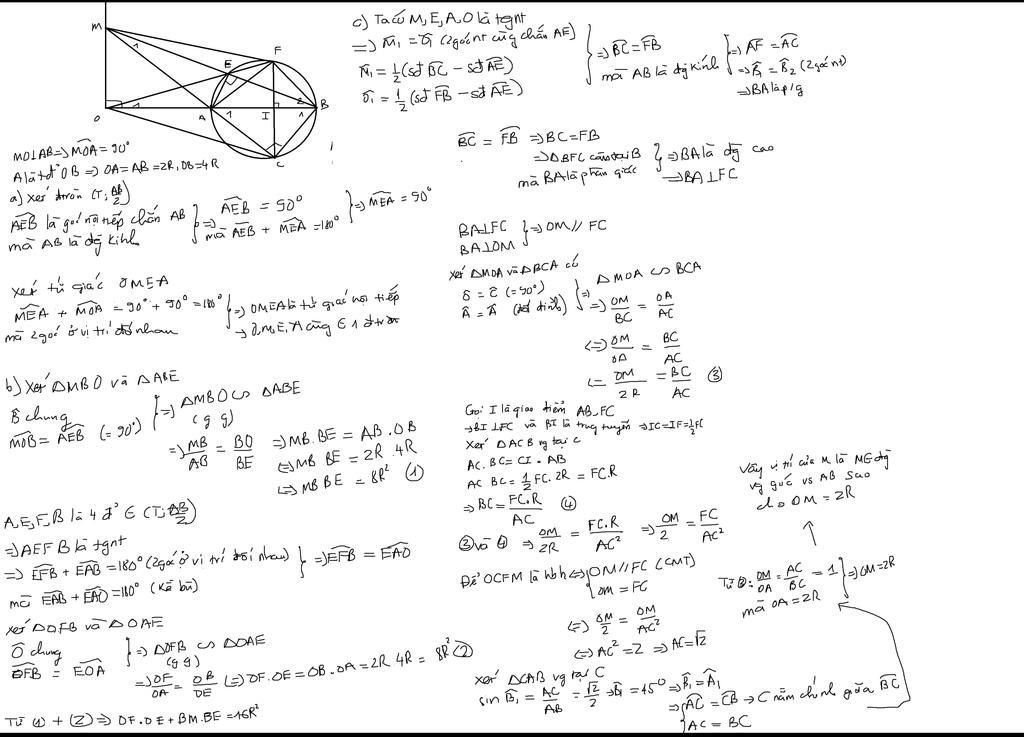 M
F
E
1
1
2
O
A
1
I
1
B
C
MO⊥AB=>M̂OA=90°
A là tđ² OB => OA=AB=2R, OB=4R
a) Xét đtròn (T; AB/2)
ÂEB là góc nội tiếp chắn AB
mà AB là đg kính
=> ÂEB = 90°
mà ÂEB + M̂EA =180°
=> M̂EA = 90°
xét tứ giác OMEA
M̂EA + M̂OA = 90° + 90° = 180°
mà 2 góc ở vị trí đối nhau
=> OMEA là tứ giác nội tiếp
-> O,M,E,A cùng ∈ 1 đtròn
b) xét ΔMBO và ΔABE
B̂ chung
M̂OB = ÂEB (= 90°)
=> ΔMBO ∽ ΔABE
(g g)
=> MB/AB = BO/BE => MB.BE = AB.OB
<=> MB BE = 2R.4R
<=> MB BE = 8R² (1)
A,E,F,B là 4 đ² ∈ (T; AB/2)
=> AEFB là tgnt
=> ÊFB + ÊAB = 180° (2 góc ở vị trí đối nhau)
mà ÊAB + ÊAO = 180° (kề bù)
=> ÊFB = ÊAO
xét ΔOFB và ΔOAE
Ô chung
ÔFB = ÊOA
=> ΔOFB ∽ ΔOAE
(g g)
=> OF/OA = OB/OE <=> OF.OE = OB.OA = 2R 4R = 8R² (2)
Từ (1) + (2) => OF.OE + BM.BE = 16R²
c) Ta có M,E,A,O là tgnt
=> M̂1 = Ô1 (2 góc nt cùng chắn AE)
M̂1 = 1/2 (sđ BC - sđ AE)
Ô1 = 1/2 (sđ FB - sđ AE)
=> BC = FB
mà AB là đg kính
=> AF = AC
=> B̂1 = B̂2 (2 góc nt)
=> BA là p/g
BC = FB => BC = FB
=> ΔBFC cân tại B
mà BA là phân giác
=> BA là đg cao
=> BA⊥FC
BA⊥FC
BA⊥OM
=> OM // FC
xét ΔMOA và ΔBCA có
Ô = Ĉ (= 90°)
Â = Â (đối đỉnh)
=> ΔMOA ∽ BCA
=> OM/BC = OA/AC
<=> OM/OA = BC/AC
<= OM/2R = BC/AC (3)
Gọi I là giao điểm AB_FC
->BI⊥FC và BI là trung tuyến => IC=IF=1/2FC
Xét ΔACB vg tại C
AC.BC = CI.AB
AC BC = 1/2 FC.2R = FC.R
=> BC = FC.R/AC (4)
(3) và (4) => OM/2R = FC.R/AC² => OM/2 = FC/AC²
Để OCFM là hbh <=> OM // FC (CMT)
OM = FC
<=> OM/2 = OM/AC²
<=> AC² = 2 => AC = √2
xét ΔCAB vg tại C
sin B̂1 = AC/AB = √2/2 => B̂1 = 45° => B̂1 = Â1
=> AC = CB -> C nằm chính giữa BC
AC = BC
Từ (3): OM/OA = AC/BC = 1
mà OA = 2R
=> OM = 2R
Vậy vị trí của M là ME đg
vg góc vs AB sao
cho OM = 2R